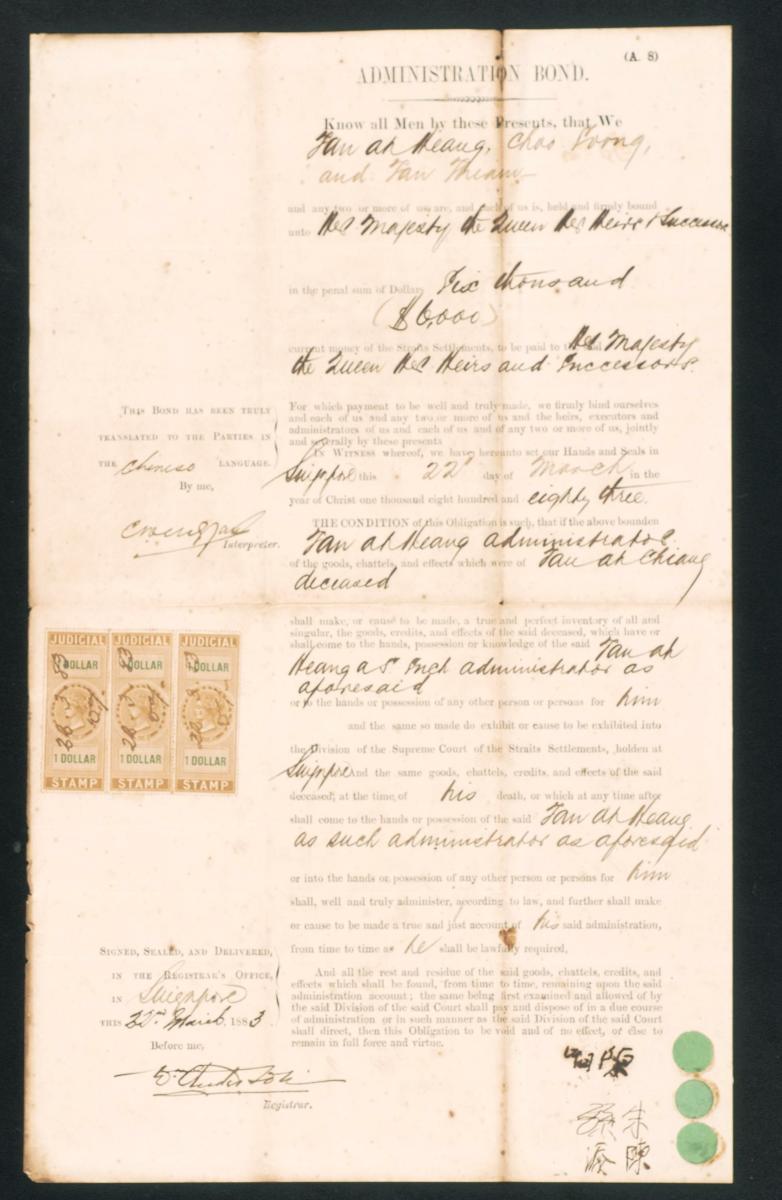 (A. 8)
ADMINISTRATION BOND.
Know all Men by these Presents, that We
Tan ah Heang, Choo Foong,
and Tan Thiam
and any two or more of us are, and each of us is, held and firmly bound
unto Her Majesty the Queen Her Heirs & Successors
in the penal sum of Dollars Six thousand
($6,000)
current money of the Straits Settlements, to be paid to the said Her Majesty
the Queen Her Heirs and Successors.
For which payment to be well and truly made, we firmly bind ourselves
and each of us and any two or more of us and the heirs, executors and
administrators of us and each of us and of any two or more of us, jointly
and severally by these presents
IN WITNESS whereof, we have hereunto set our Hands and Seals in
Singapore this 22d day of March in the
year of Christ one thousand eight hundred and eighty three.
THIS BOND HAS BEEN TRULY
TRANSLATED TO THE PARTIES IN
THE Chinese LANGUAGE.
By me,
Interpreter.
THE CONDITION of this Obligation is such, that if the above bounden
Tan ah Heang administrator
of the goods, chattels, and effects which were of Tan ah Chiang
deceased
shall make, or cause to be made, a true and perfect inventory of all and
singular, the goods, credits, and effects of the said deceased, which have or
shall come to the hands, possession or knowledge of the said Tan ah
Heang as such administrator as
aforesaid
or to the hands or possession of any other person or persons for him
and the same so made do exhibit or cause to be exhibited into
the Division of the Supreme Court of the Straits Settlements, holden at
Singapore And the same goods, chattels, credits, and effects of the said
deceased, at the time of his death, or which at any time after
shall come to the hands or possession of the said Tan ah Heang
as such administrator as aforesaid
or into the hands or possession of any other person or persons for him
shall, well and truly administer, according to law, and further shall make
or cause to be made a true and just account of his said administration,
from time to time as he shall be lawfully required,
And all the rest and residue of the said goods, chattels, credits, and
effects which shall be found, from time to time, remaining upon the said
administration account; the same being first examined and allowed of by
the said Division of the said Court shall pay and dispose of in a due course
of administration or in such manner as the said Division of the said Court
shall direct, then this Obligation to be void and of no effect, or else to
remain in full force and virtue.
JUDICIAL JUDICIAL JUDICIAL
1 DOLLAR 1 DOLLAR 1 DOLLAR
1 DOLLAR 1 DOLLAR 1 DOLLAR
STAMP STAMP STAMP
SIGNED, SEALED, AND DELIVERED,
IN THE REGISTRAR'S OFFICE,
IN Singapore
THIS 22nd March 1883
Before me,
Registrar.
朱
陳